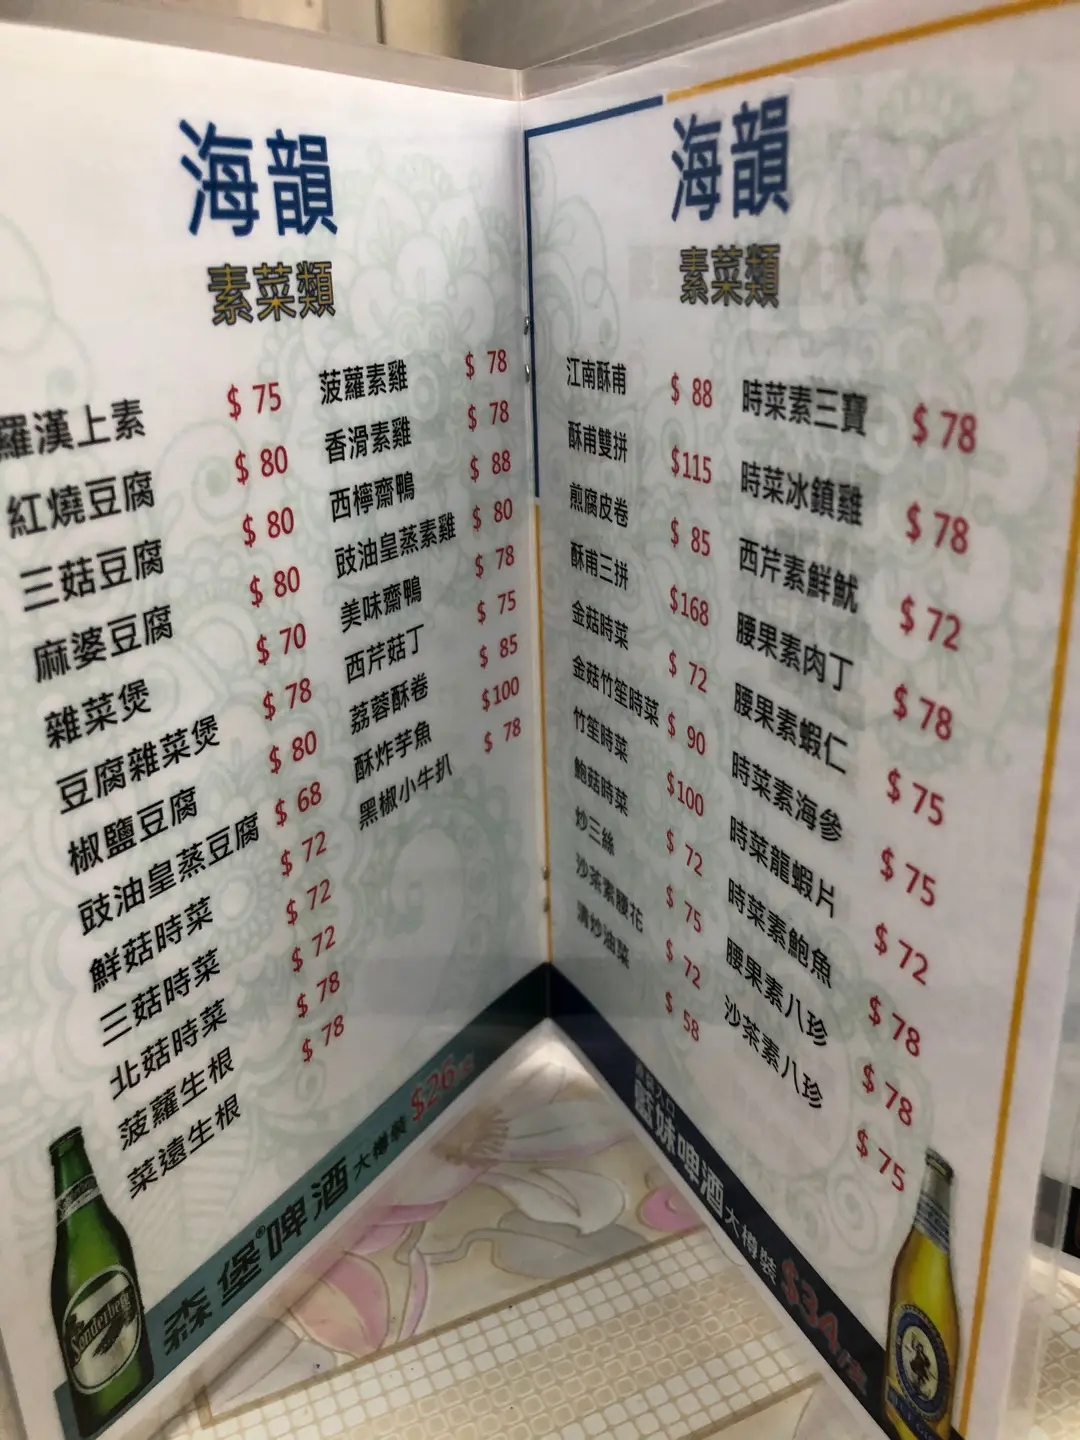 海韻
素菜類
羅漢上素 $ 75
紅燒豆腐 $ 80
三菇豆腐 $ 80
麻婆豆腐 $ 80
雜菜煲 $ 70
豆腐雜菜煲 $ 78
椒鹽豆腐 $ 80
豉油皇蒸豆腐 $ 68
鮮菇時菜 $ 72
三菇時菜 $ 72
北菇時菜 $ 72
菠蘿生根 $ 78
菜遠生根 $ 78
菠蘿素雞 $ 78
香滑素雞 $ 78
西檸齋鴨 $ 88
豉油皇蒸素雞 $ 80
美味齋鴨 $ 78
西芹菇丁 $ 75
荔蓉酥卷 $ 85
酥炸芋魚 $100
黑椒小牛扒 $ 78
Sonderberg
森堡®啤酒 大樽裝 $26
海韻
素菜類
江南酥甫 $ 88
酥甫雙拼 $115
煎腐皮卷 $ 85
酥甫三拼 $168
金菇時菜 $ 72
金菇竹笙時菜 $ 90
竹笙時菜 $100
鮑菇時菜 $ 72
炒三絲 $ 75
沙茶素腰花 $ 72
清炒油菜 $ 58
時菜素三寶 $ 78
時菜冰鎮雞 $ 78
西芹素鮮魷 $ 72
腰果素肉丁 $ 78
腰果素蝦仁 $ 75
時菜素海參 $ 75
時菜龍蝦片 $ 72
時菜素鮑魚 $ 78
腰果素八珍 $ 78
沙茶素八珍 $ 75
藍妹啤酒 大樽裝 $34/支